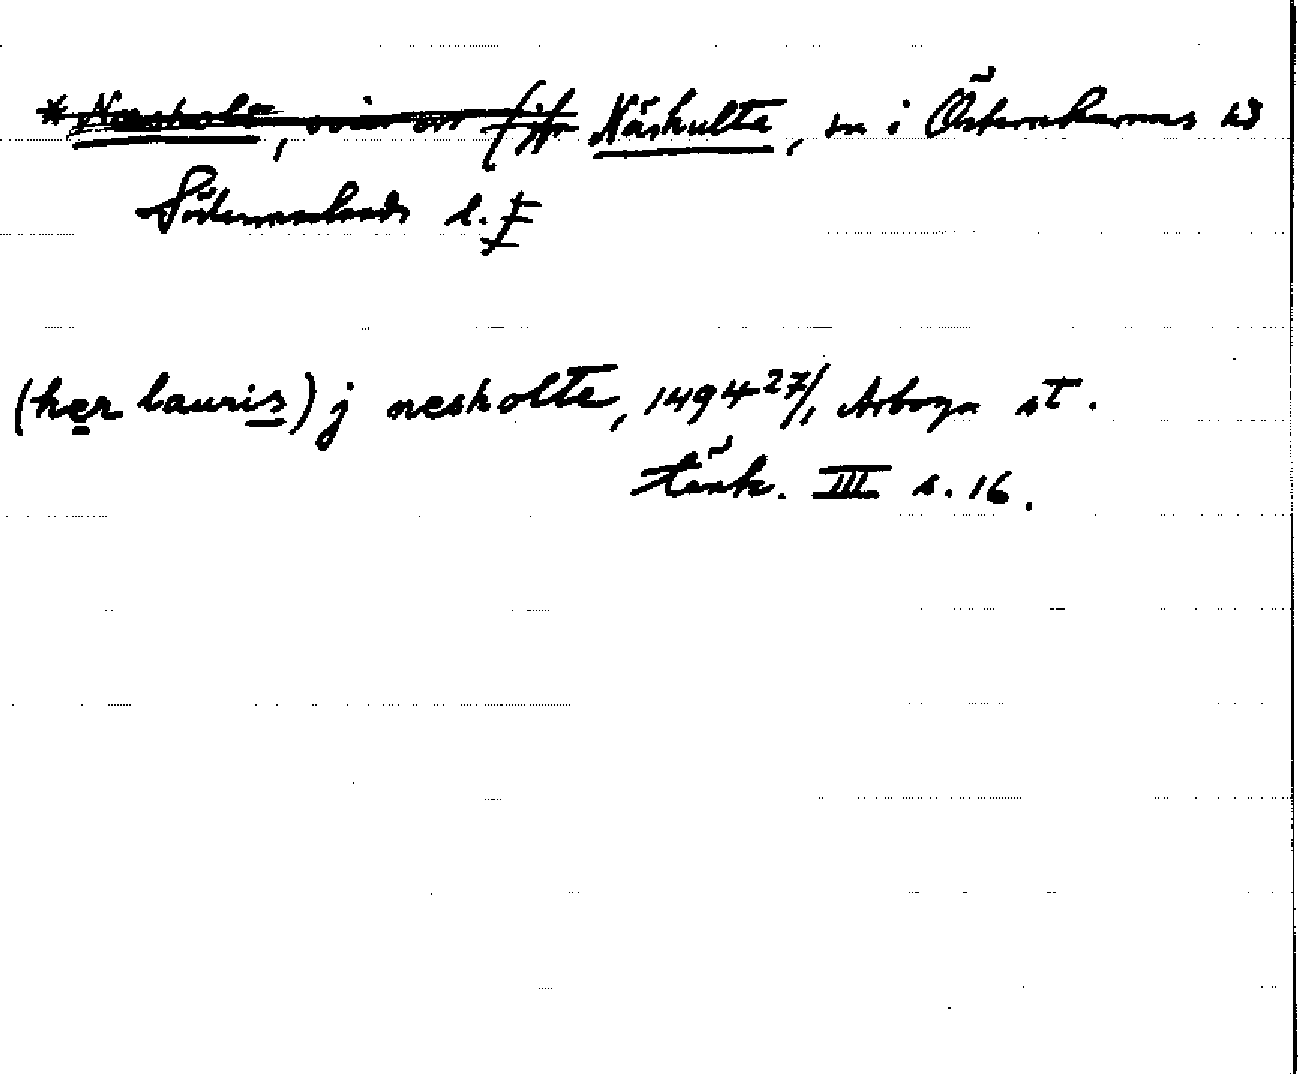 Näshulte, sn i Österrekarnes hd
Södermanlands l.
(her lauris) j nesholte, 1494 27/1, Arboga st.
tänk. III s. 16.